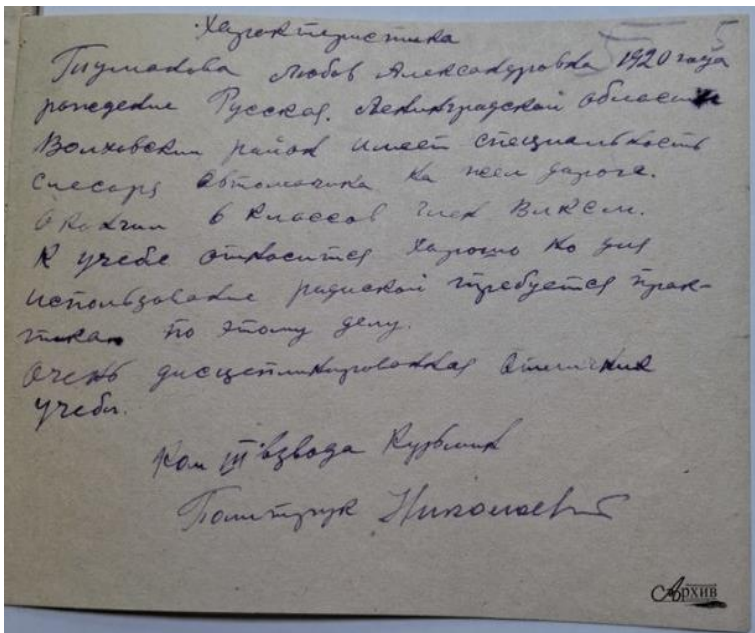 Характеристика
Тумакова Любов Александровна 1920 года
рождение Русская. Ленинградской области
Волховским район имеет специальность
слесаря автоматчика на жел дороге.
Окончил 6 классов член ВЛКСМ.
К учебе относится хорошо но для
использование радисткой требуется прак-
тика по этому делу.
Очень дисцеплинированная отличник
учебы.
Ком III взвода Кузьмин
Политрук
Архив